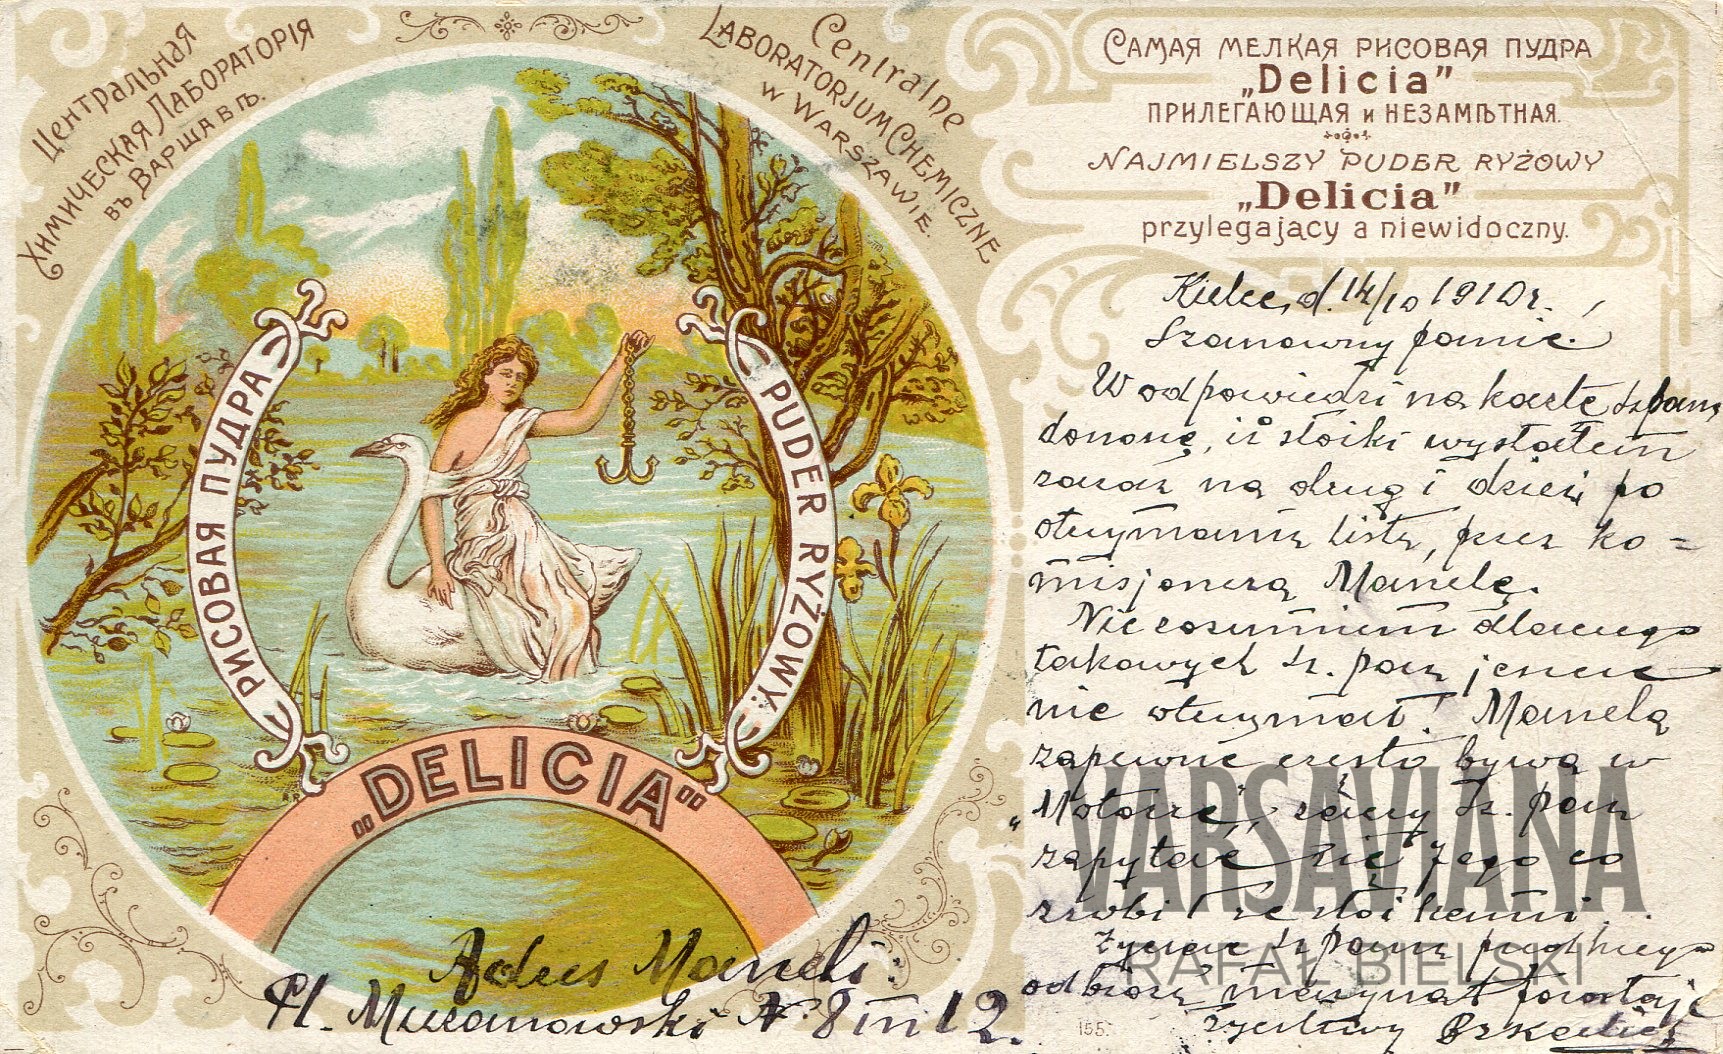 Центральная
Химическая Лабораторія
въ Варшавѣ.
Centralne
Laboratorjum Chemiczne
w Warszawie.
РИСОВАЯ ПУДРА
PUDER RYŻOWY.
„DELICIA”
Самая мелкая рисовая пудра
„Delicia”
прилегающая и незамѣтная.
Najmielszy puder ryżowy
„Delicia”
przylegający a niewidoczny.
Kielce, d. 14/10 1910 r.
Szanowny panie!
W odpowiedzi na kartę Sz. pana
donoszę, iż słoiki wysłałem
zaraz na drugi dzień po
otrzymaniu listu, przez ko-
misjonera Manelę.
Nie rozumiem dlaczego
takowych Sz. pan jeszcze
nie otrzymał! Manela
zapewne często bywa w
„Motorze”, raczy Sz. pan
zapytać się jego co
zrobił ze słoikami.
Życząc Sz. panu prędkiego
odbioru, pozostaję
życzliwy
Adres Maneli:
Pl. Muranowski N. 8 m 12.
155.
VARSAVIANA
RAFAŁ BIELSKI